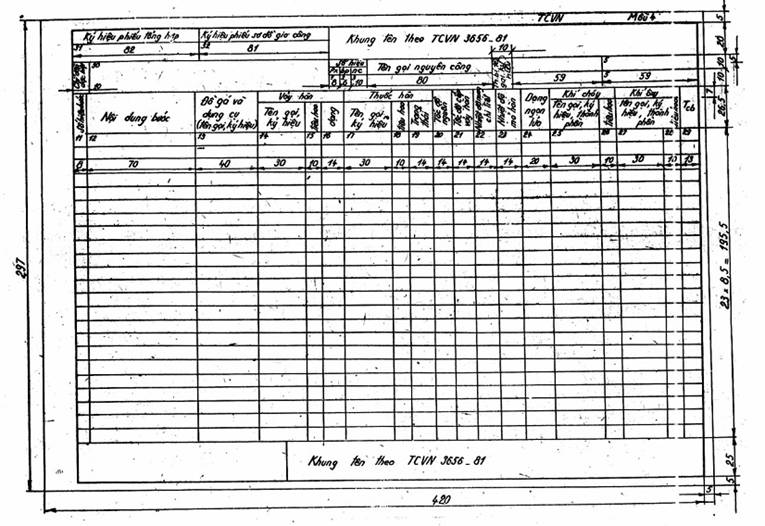 TCVN Mẫu 4
Ký hiệu phiếu tổng hợp
Ký hiệu phiếu sơ đồ gia công
Khung tên theo TCVN 3656-81
31 82
32 81
10
30
Số hiệu
Tên gọi nguyên công
PX
NC
8 8 10
80
59
59
10
Nội dung bước
Đồ gá và
dụng cụ
(Tên gọi, ký hiệu)
Vảy hàn
Tên gọi,
ký hiệu
Tiêu hao
Thuốc hàn
Tên gọi,
ký hiệu
Tiêu hao
Trạng thái
Dạng
ngọn
lửa
Khí cháy
Tên gọi, ký
hiệu, thành
phần
Tiêu hao
Tên gọi, ký
hiệu, thành
phần
11 12 13 14 15 16 17 18 19 20 21 22 23 24 25 26 27 28 29
8 70 40 30 10 14 30 10 14 14 14 14 14 20 30 10 30 10 13
Khung tên theo TCVN 3656-81
297
420
5
20
10 10
26,5
23 x 8,5 = 195,5
25
5
5